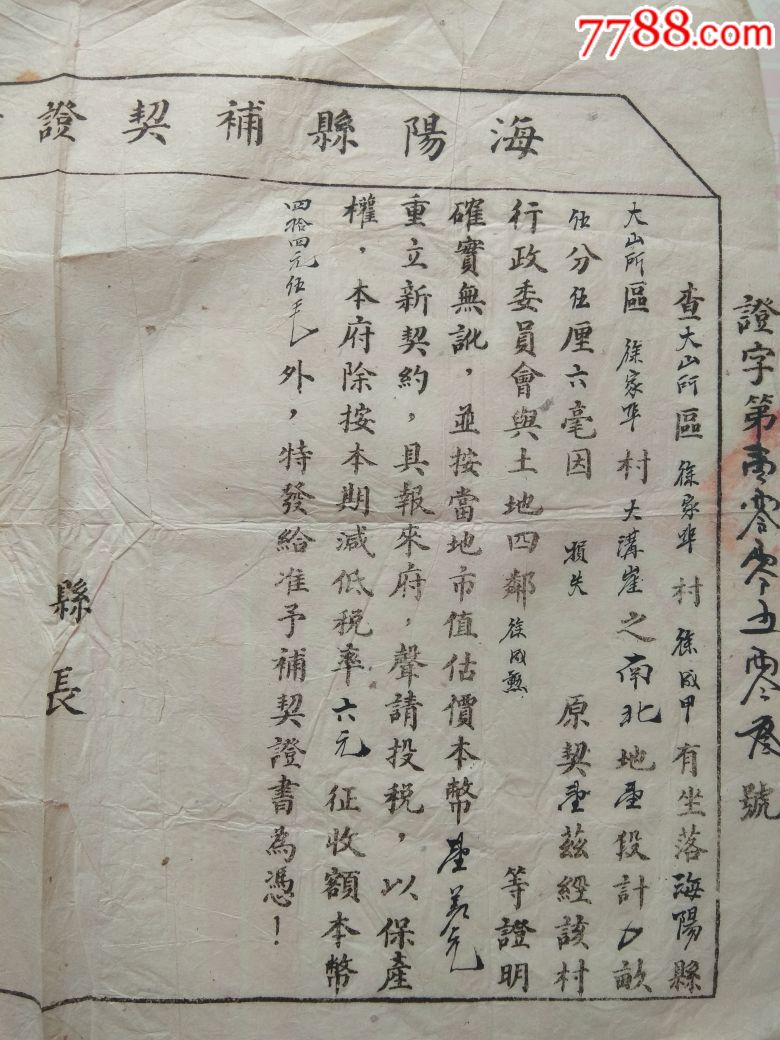 7788.com
海陽縣補契證
證字第壹零零五零號
查大山所區徐家夼村徐成甲有坐落海陽縣
大山所區徐家夼村大溝崖之南北地壹段計畝
伍分伍厘六毫因損失原契壹茲經該村
行政委員會與土地四鄰徐成懃等證明
確實無訛,並按當地市值估價本幣
重立新契約,具報來府,聲請投税,以保產
權,本府除按本期減低税率六元征收額本幣
四拾四元伍毛外,特發給准予補契證書為憑!
縣長